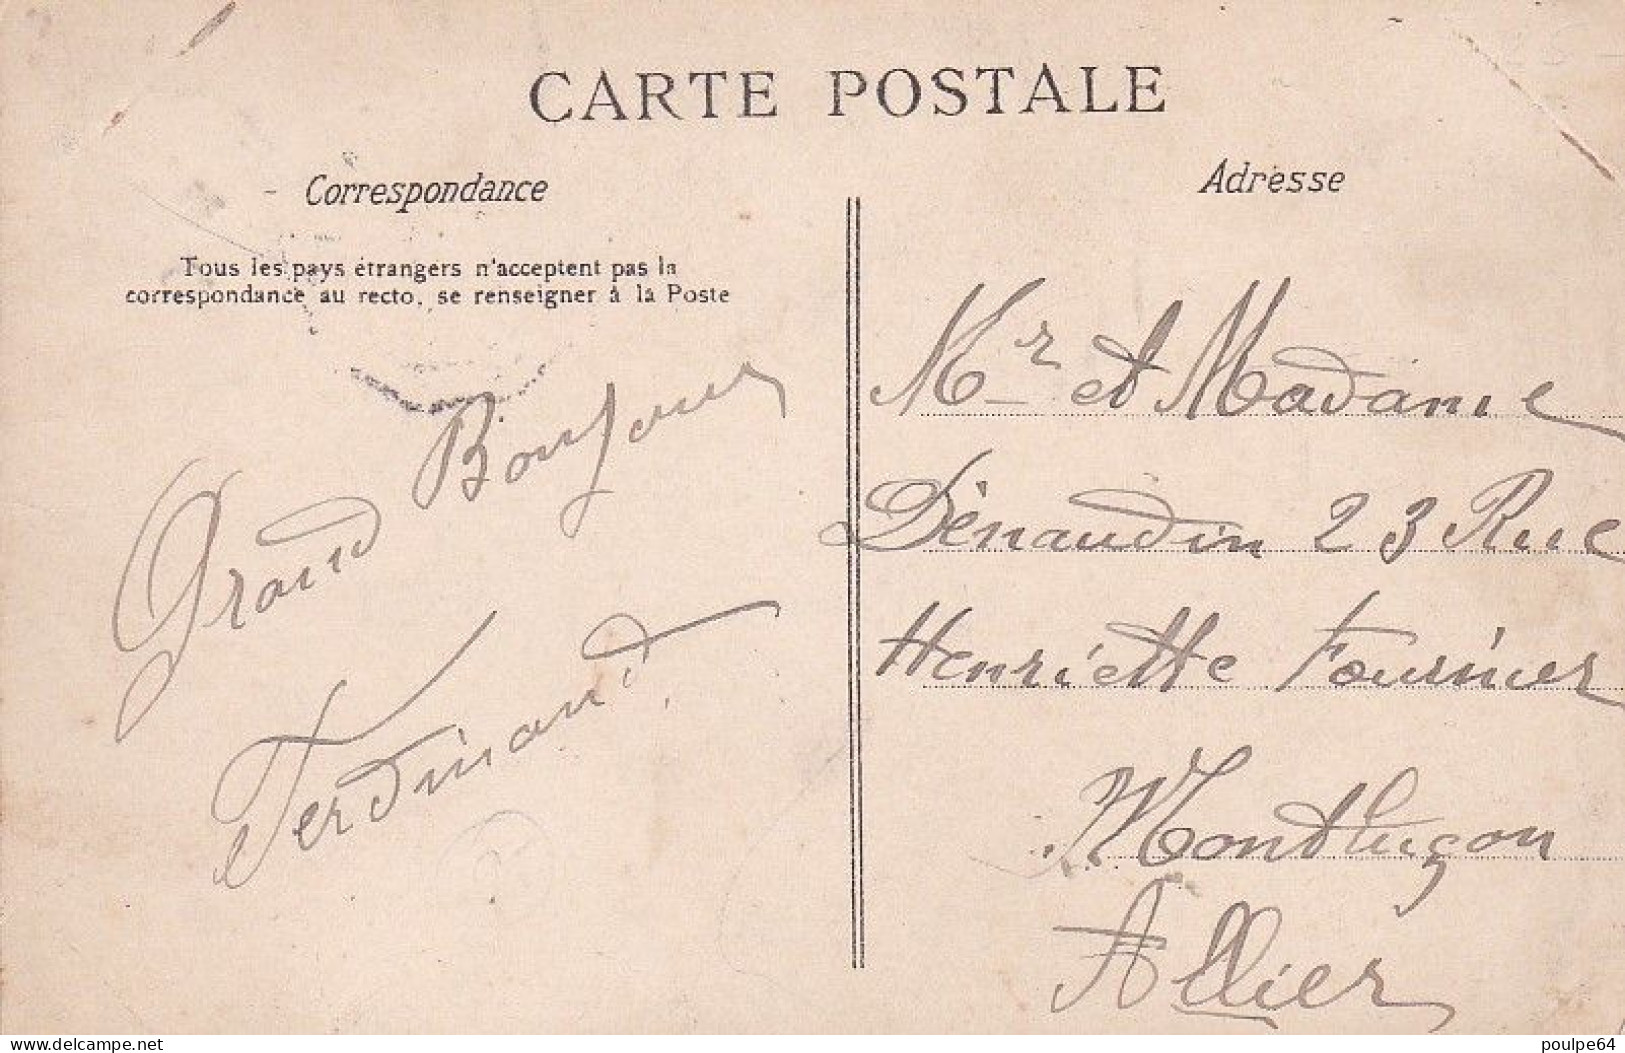 CARTE POSTALE
Correspondance
Tous les pays étrangers n'acceptent pas la
correspondance au recto, se renseigner à la Poste
Grand Bonjour
Ferdinand
Adresse
Mr et Madame
Dénaudin 23 Rue
Henriette Fournier
Montluçon
Allier
www.delcampe.net
poulpe64